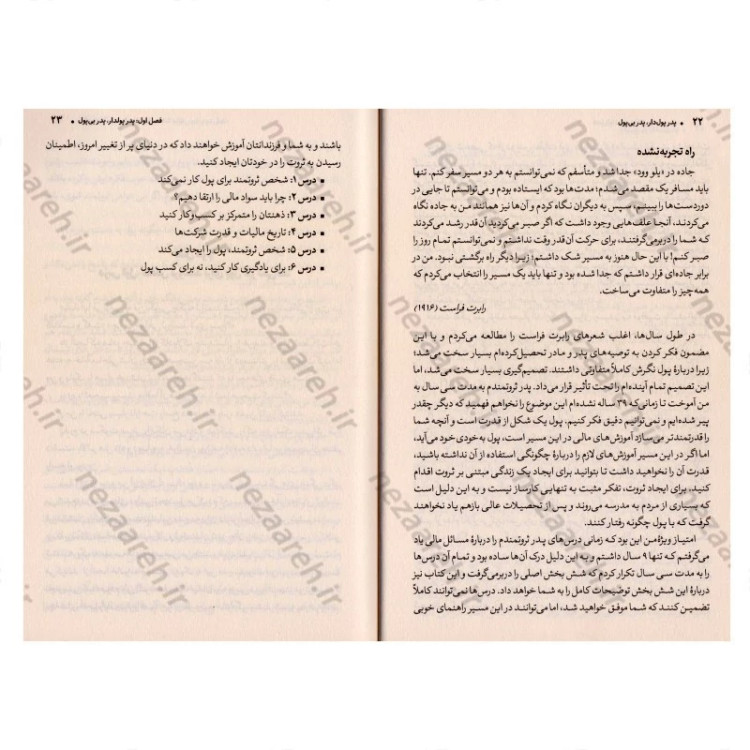 ۲۲ • پدر پول‌دار، پدر بی‌پول
راه تجربه‌نشده
جاده در «یلو وود» جدا شد و متأسفم که نمی‌توانستم به هر دو مسیر سفر کنم. تنها
باید مسافر یک مقصد می‌شدم؛ مدت‌ها بود که ایستاده بودم و می‌توانستم تا جایی در
دوردست‌ها را ببینم، سپس به دیگران نگاه کردم و آن‌ها نیز همانند من به جاده نگاه
می‌کردند، آنجا علف‌هایی وجود داشت که اگر صبر می‌کردید آن‌قدر رشد می‌کردند
که شما را دربرمی‌گرفتند، برای حرکت آن‌قدر وقت نداشتم و نمی‌توانستم تمام روز را
صبر کنم! با این حال هنوز به مسیر شک داشتم؛ زیرا دیگر راه برگشتی نبود. من در
برابر جاده‌ای قرار داشتم که جدا شده بود و تنها باید یک مسیر را انتخاب می‌کردم که
همه‌چیز را متفاوت می‌ساخت.
رابرت فراست (۱۹۱۶)
در طول سال‌ها، اغلب شعرهای رابرت فراست را مطالعه می‌کردم و با این
مضمون فکر کردن به توصیه‌های پدر و مادر تحصیل‌کرده‌ام بسیار سخت می‌شد؛
زیرا دربارهٔ پول نگرش کاملاً متفاوتی داشتند. تصمیم‌گیری بسیار سخت می‌شد، اما
این تصمیم تمام آینده‌ام را تحت تأثیر قرار می‌داد. پدر ثروتمندم به مدت سی سال به
من آموخت تا زمانی‌که ۳۹ ساله نشده‌ام این موضوع را نخواهم فهمید که دیگر چقدر
پیر شده‌ایم و نمی‌توانیم دقیق فکر کنیم. پول یک شکل از قدرت است و آنچه شما
را قدرتمندتر می‌سازد آموزش‌های مالی در این مسیر است، پول به‌خودی خود می‌آید،
اما اگر در این مسیر آموزش‌های لازم را دربارهٔ چگونگی استفاده از آن نداشته باشید،
قدرت آن را نخواهید داشت تا بتوانید برای ایجاد یک زندگی مبتنی بر ثروت اقدام
کنید. برای ایجاد ثروت، تفکر مثبت به تنهایی کارساز نیست و به این دلیل است
که بسیاری از مردم به مدرسه می‌روند و پس از تحصیلات عالی بازهم یاد نخواهند
گرفت که با پول چگونه رفتار کنند.
امتیاز ویژهٔ من این بود که زمانی درس‌های پدر ثروتمندم را دربارهٔ مسائل مالی یاد
می‌گرفتم که تنها ۹ سال داشتم و به این دلیل درک آن‌ها ساده بود و تمام آن درس‌ها
را به مدت سی سال تکرار کردم که شش بخش اصلی را دربرمی‌گرفت و این کتاب نیز
دربارهٔ این شش بخش توضیحات کامل را به شما خواهد داد. درس‌ها نمی‌توانند کاملاً
تضمین کنند که شما موفق خواهید شد، اما می‌توانند در این مسیر راهنمای خوبی
فصل اول: پدر پولدار، پدر بی‌پول • ۲۳
باشند و به شما و فرزندانتان آموزش خواهند داد که در دنیای پر از تغییر امروز، اطمینان
رسیدن به ثروت را در خودتان ایجاد کنید.
▪ درس ۱: شخص ثروتمند برای پول کار نمی‌کند
▪ درس ۲: چرا باید سواد مالی را ارتقا دهیم؟
▪ درس ۳: ذهنتان را متمرکز بر کسب‌وکار کنید
▪ درس ۴: تاریخ مالیات و قدرت شرکت‌ها
▪ درس ۵: شخص ثروتمند، پول را ایجاد می‌کند
▪ درس ۶: برای یادگیری کار کنید، نه برای کسب پول
nezaareh.ir
nezaareh.ir
nezaareh.ir
nezaareh.ir
nezaareh.ir
nezaareh.ir